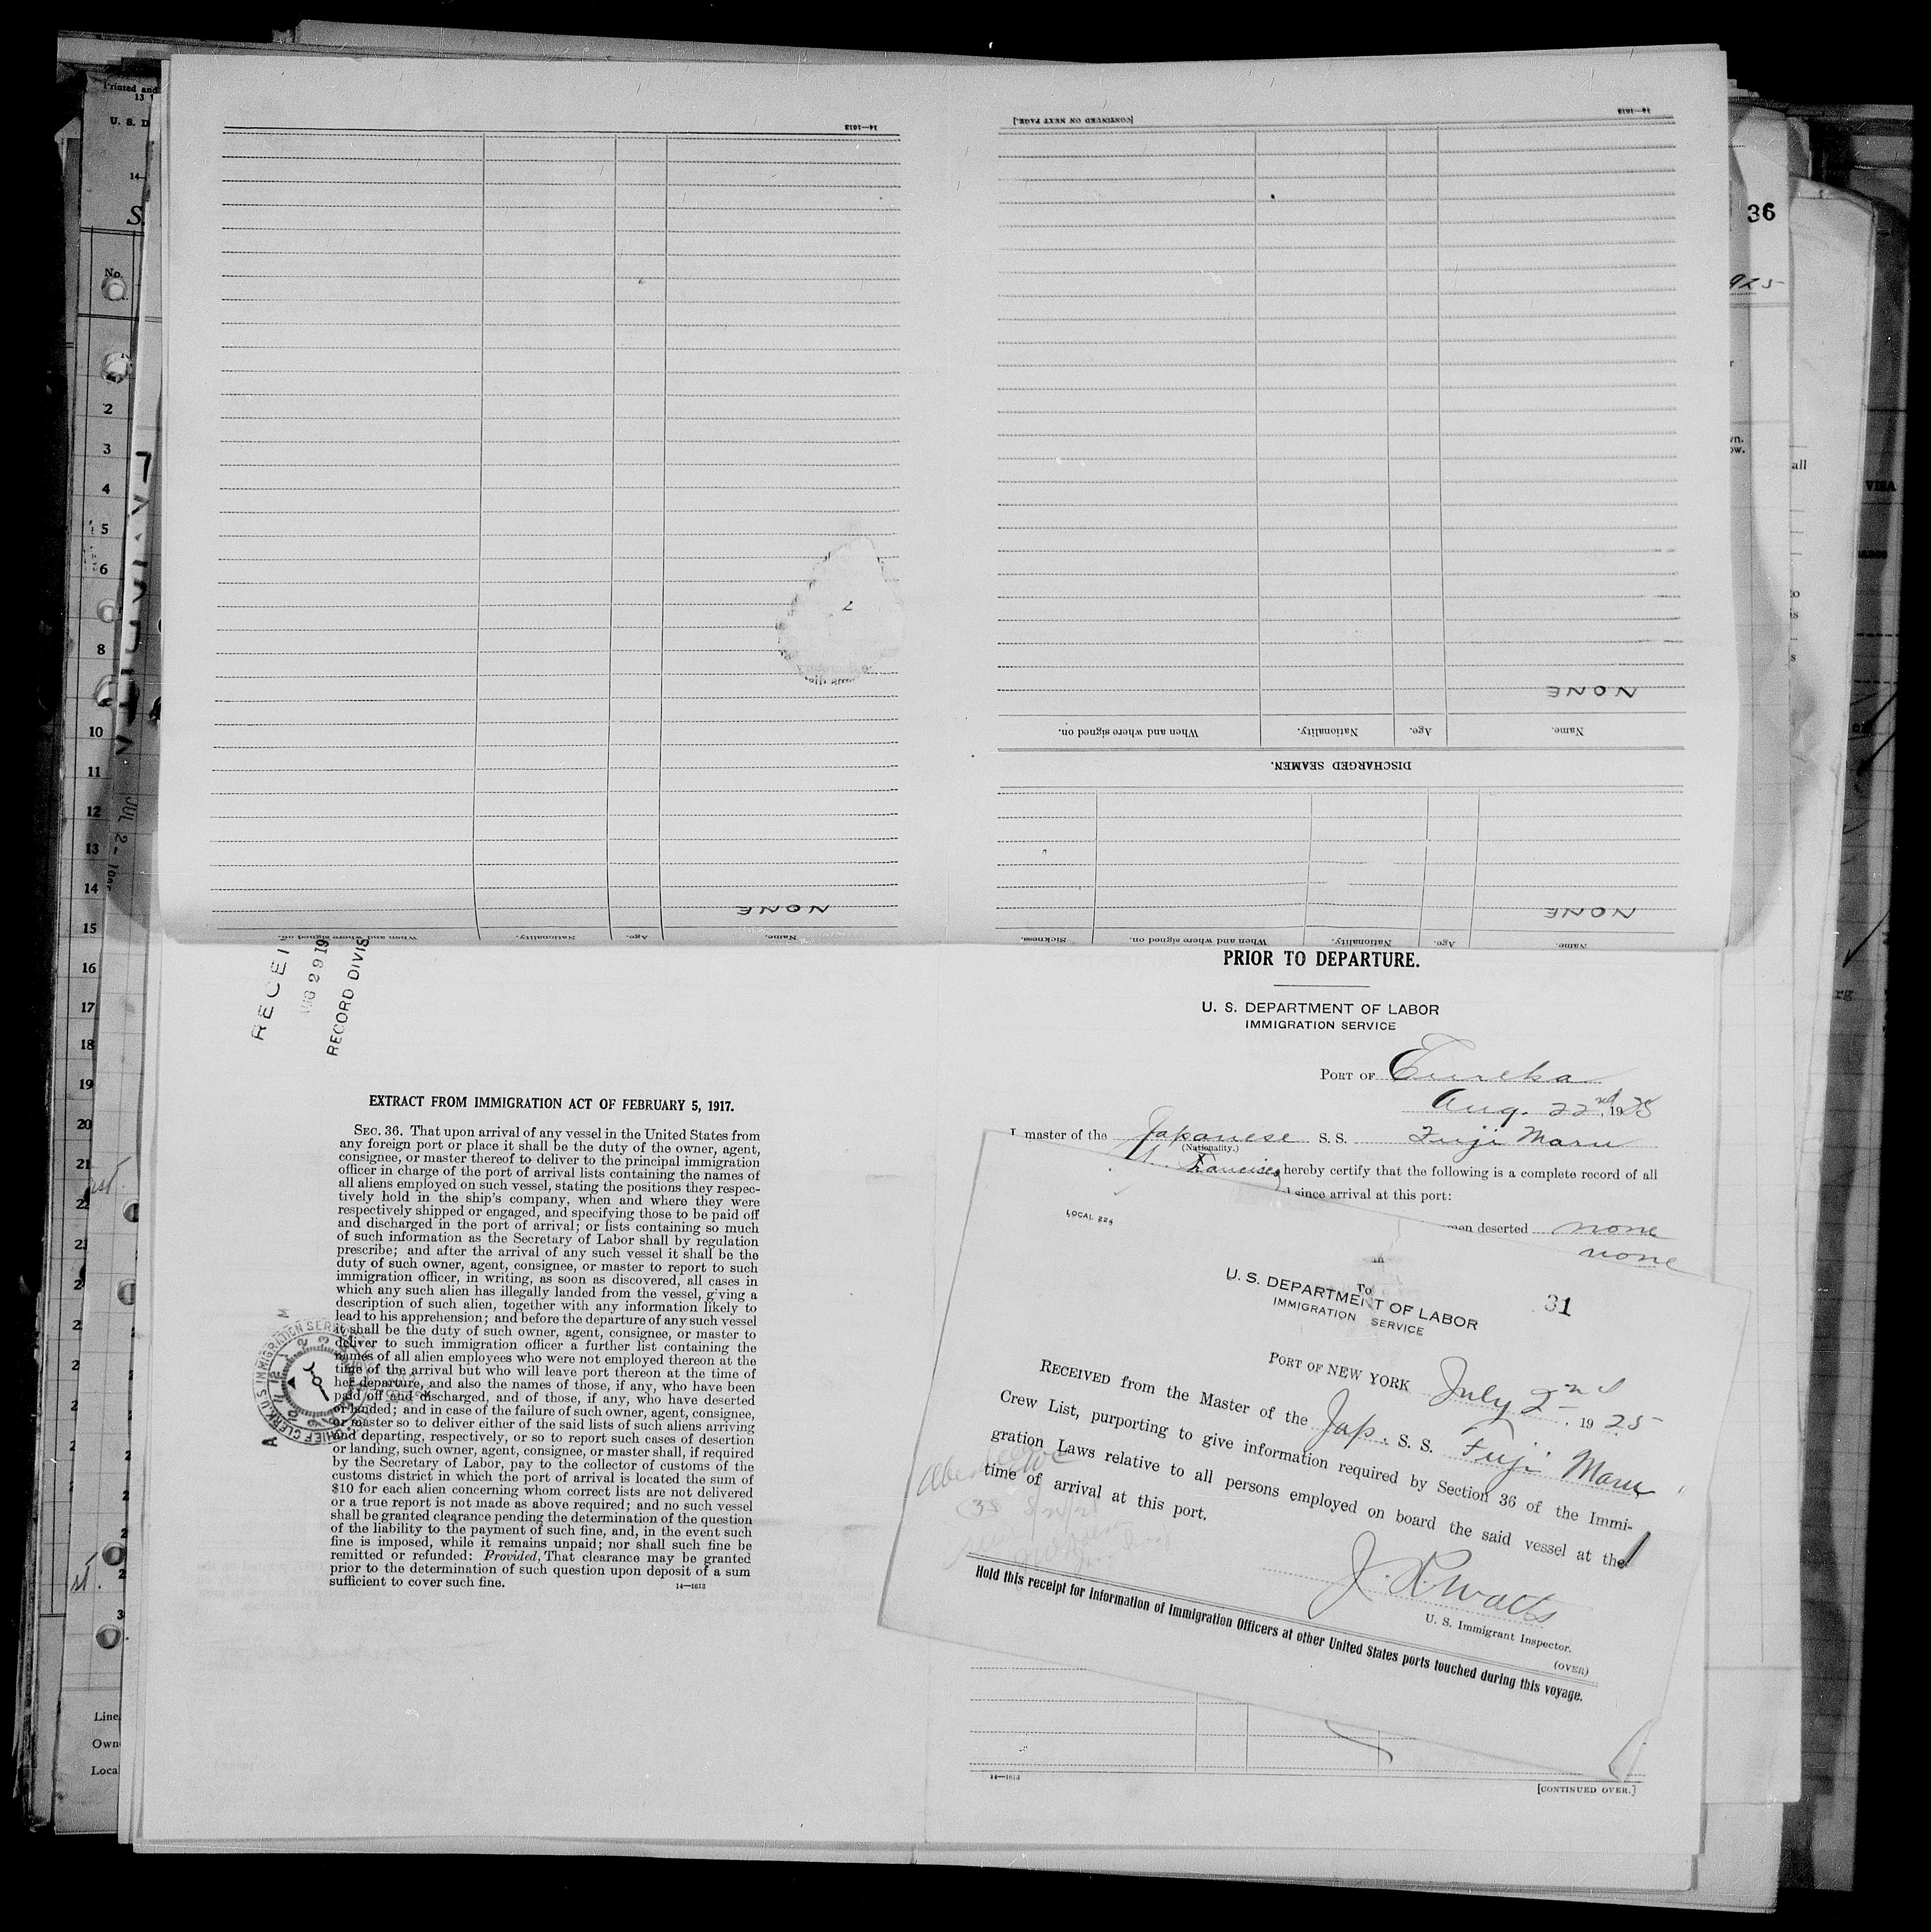 Printed and
13
U. S. D
14—
S.
No.
2
3
4
5
6
8
10
11
12
13
14
15
16
17
18
19
20
21
JUL 2 -
Line
Own
Loca
36
925
all
VISA
14—1613
NONE
Name.
Age.
Nationality.
When and where signed on.
[CONTINUED ON NEXT PAGE.]
14—1613
NONE
Name.
Age.
Nationality.
When and where signed on.
DISCHARGED SEAMEN.
NONE
Name.
Age.
Nationality.
When and where signed on.
Sickness.
RECEI
AUG 29 19
RECORD DIVIS
EXTRACT FROM IMMIGRATION ACT OF FEBRUARY 5, 1917.
SEC. 36. That upon arrival of any vessel in the United States from
any foreign port or place it shall be the duty of the owner, agent,
consignee, or master thereof to deliver to the principal immigration
officer in charge of the port of arrival lists containing the names of
all aliens employed on such vessel, stating the positions they respec-
tively hold in the ship's company, when and where they were
respectively shipped or engaged, and specifying those to be paid off
and discharged in the port of arrival; or lists containing so much
of such information as the Secretary of Labor shall by regulation
prescribe; and after the arrival of any such vessel it shall be the
duty of such owner, agent, consignee, or master to report to such
immigration officer, in writing, as soon as discovered, all cases in
which any such alien has illegally landed from the vessel, giving a
description of such alien, together with any information likely to
lead to his apprehension; and before the departure of any such vessel
it shall be the duty of such owner, agent, consignee, or master to
deliver to such immigration officer a further list containing the
names of all alien employees who were not employed thereon at the
time of the arrival but who will leave port thereon at the time of
her departure, and also the names of those, if any, who have been
paid off and discharged, and of those, if any, who have deserted
or landed; and in case of the failure of such owner, agent, consignee,
or master so to deliver either of the said lists of such aliens arriving
and departing, respectively, or so to report such cases of desertion
or landing, such owner, agent, consignee, or master shall, if required
by the Secretary of Labor, pay to the collector of customs of the
customs district in which the port of arrival is located the sum of
$10 for each alien concerning whom correct lists are not delivered
or a true report is not made as above required; and no such vessel
shall be granted clearance pending the determination of the question
of the liability to the payment of such fine, and, in the event such
fine is imposed, while it remains unpaid; nor shall such fine be
remitted or refunded: Provided, That clearance may be granted
prior to the determination of such question upon deposit of a sum
sufficient to cover such fine.
14—1613
CHIEF CLERK U.S. IMMIGRATION SER
PRIOR TO DEPARTURE.
U. S. DEPARTMENT OF LABOR
IMMIGRATION SERVICE
PORT OF Eureka
Aug. 22nd, 1925
I, master of the Japanese S. S. Fuji Maru
(Nationality.)
Francisco, hereby certify that the following is a complete record of all
since arrival at this port:
men deserted none
none
To
LOCAL 224
31
U. S. DEPARTMENT OF LABOR
IMMIGRATION SERVICE
PORT OF NEW YORK July 2nd, 1925
RECEIVED from the Master of the Jap. S. S. Fuji Maru
Crew List, purporting to give information required by Section 36 of the Immi-
gration Laws relative to all persons employed on board the said vessel at the
time of arrival at this port.
J. R. Watts
U. S. Immigrant Inspector.
(OVER)
Hold this receipt for information of Immigration Officers at other United States ports touched during this voyage.
14—1613
[CONTINUED OVER.]